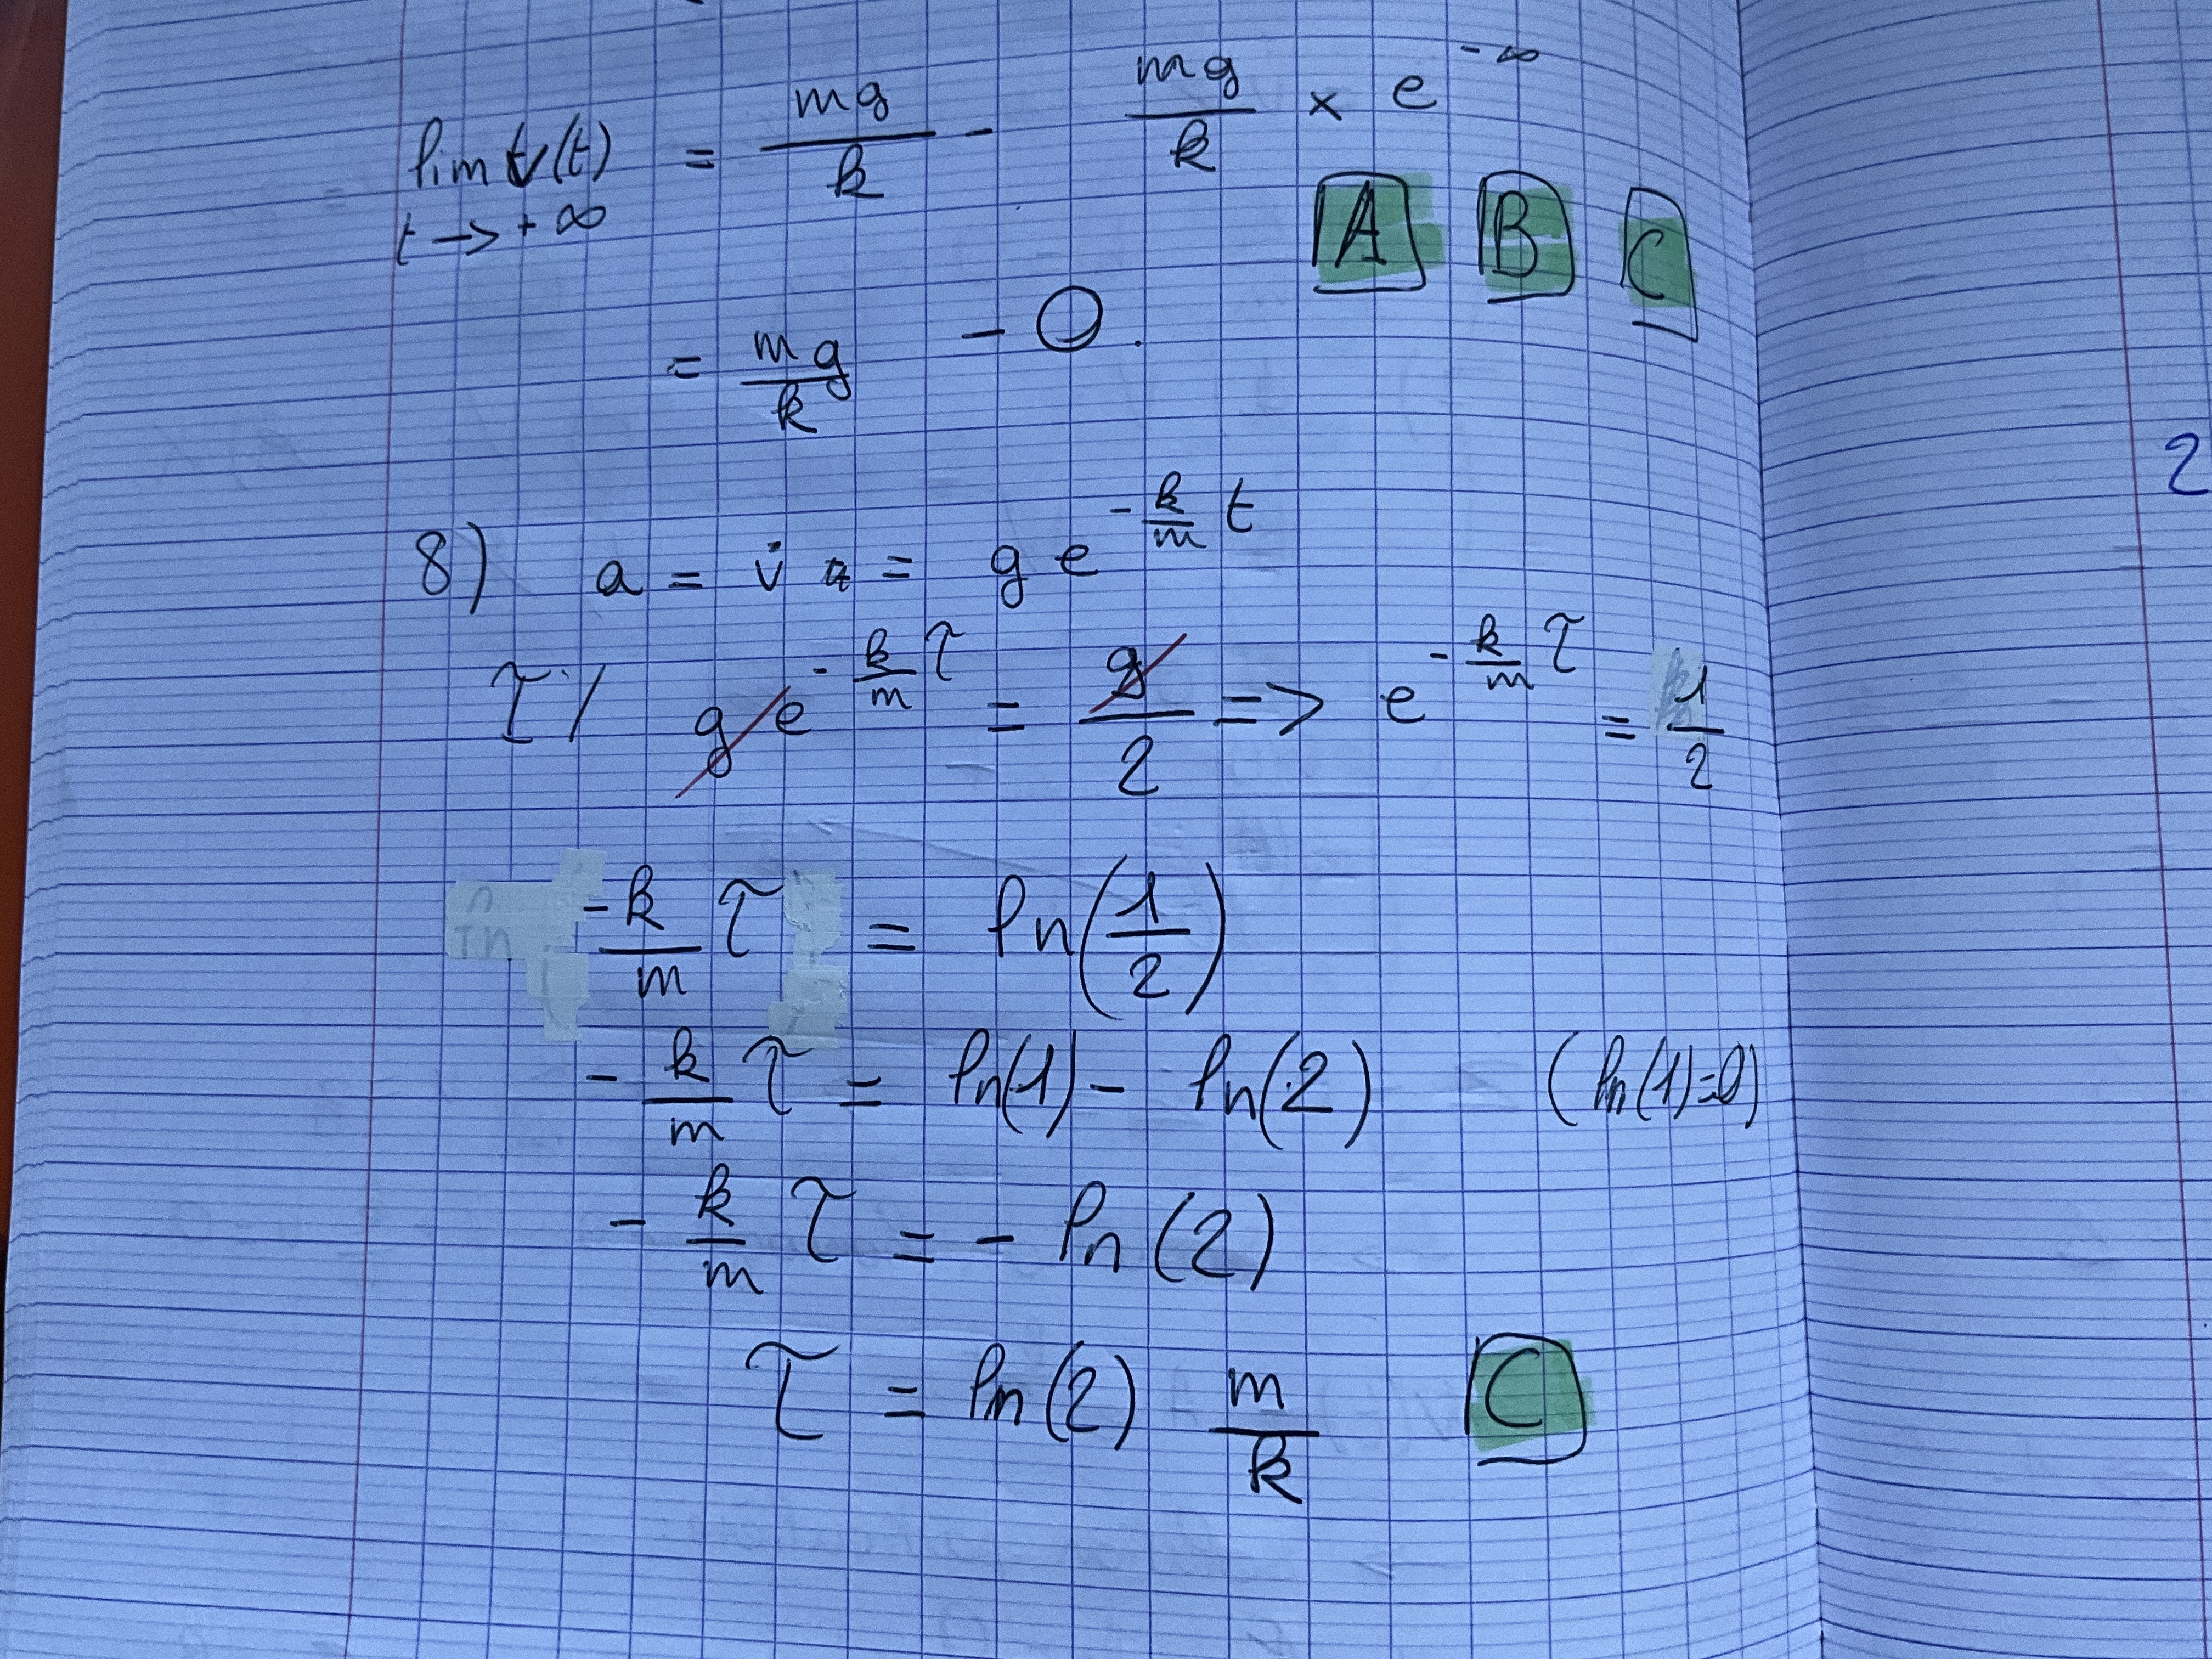 lim v(t) = mg/k - mg/k × e^-∞
t → +∞
A B C
= mg/k - 0.
8) a = v̇ = g e^(-k/m t)
τ / g e^(-k/m τ) = g/2 => e^(-k/m τ) = 1/2
-k/m τ = ln(1/2)
- k/m τ = ln(1) - ln(2) (ln(1)=0)
- k/m τ = - ln(2)
τ = ln(2) m/k C
2